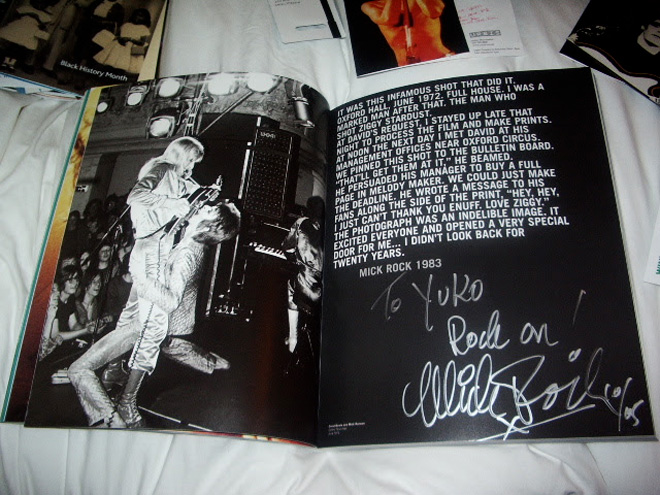 Black History Month
IT WAS THIS INFAMOUS SHOT THAT DID IT.
OXFORD HALL, JUNE 1972. FULL HOUSE. I WAS A
MARKED MAN AFTER THAT. THE MAN WHO
SHOT ZIGGY STARDUST.
AT DAVID'S REQUEST, I STAYED UP LATE THAT
NIGHT TO PROCESS THE FILM AND MAKE PRINTS.
AT NOON THE NEXT DAY I MET DAVID AT HIS
MANAGEMENT OFFICES NEAR OXFORD CIRCUS.
WE PINNED THIS SHOT TO THE BULLETIN BOARD.
"THAT'LL GET THEM AT IT," HE BEAMED.
HE PERSUADED HIS MANAGER TO BUY A FULL
PAGE IN MELODY MAKER. WE COULD JUST MAKE
THE DEADLINE. HE WROTE A MESSAGE TO HIS
FANS ALONG THE SIDE OF THE PRINT, "HEY, HEY,
I JUST CAN'T THANK YOU ENUFF. LOVE ZIGGY."
THE PHOTOGRAPH WAS AN INDELIBLE IMAGE. IT
EXCITED EVERYONE AND OPENED A VERY SPECIAL
DOOR FOR ME... I DIDN'T LOOK BACK FOR
TWENTY YEARS.
MICK ROCK 1983
To YUKO
Rock on!
Mick Rock 10/05